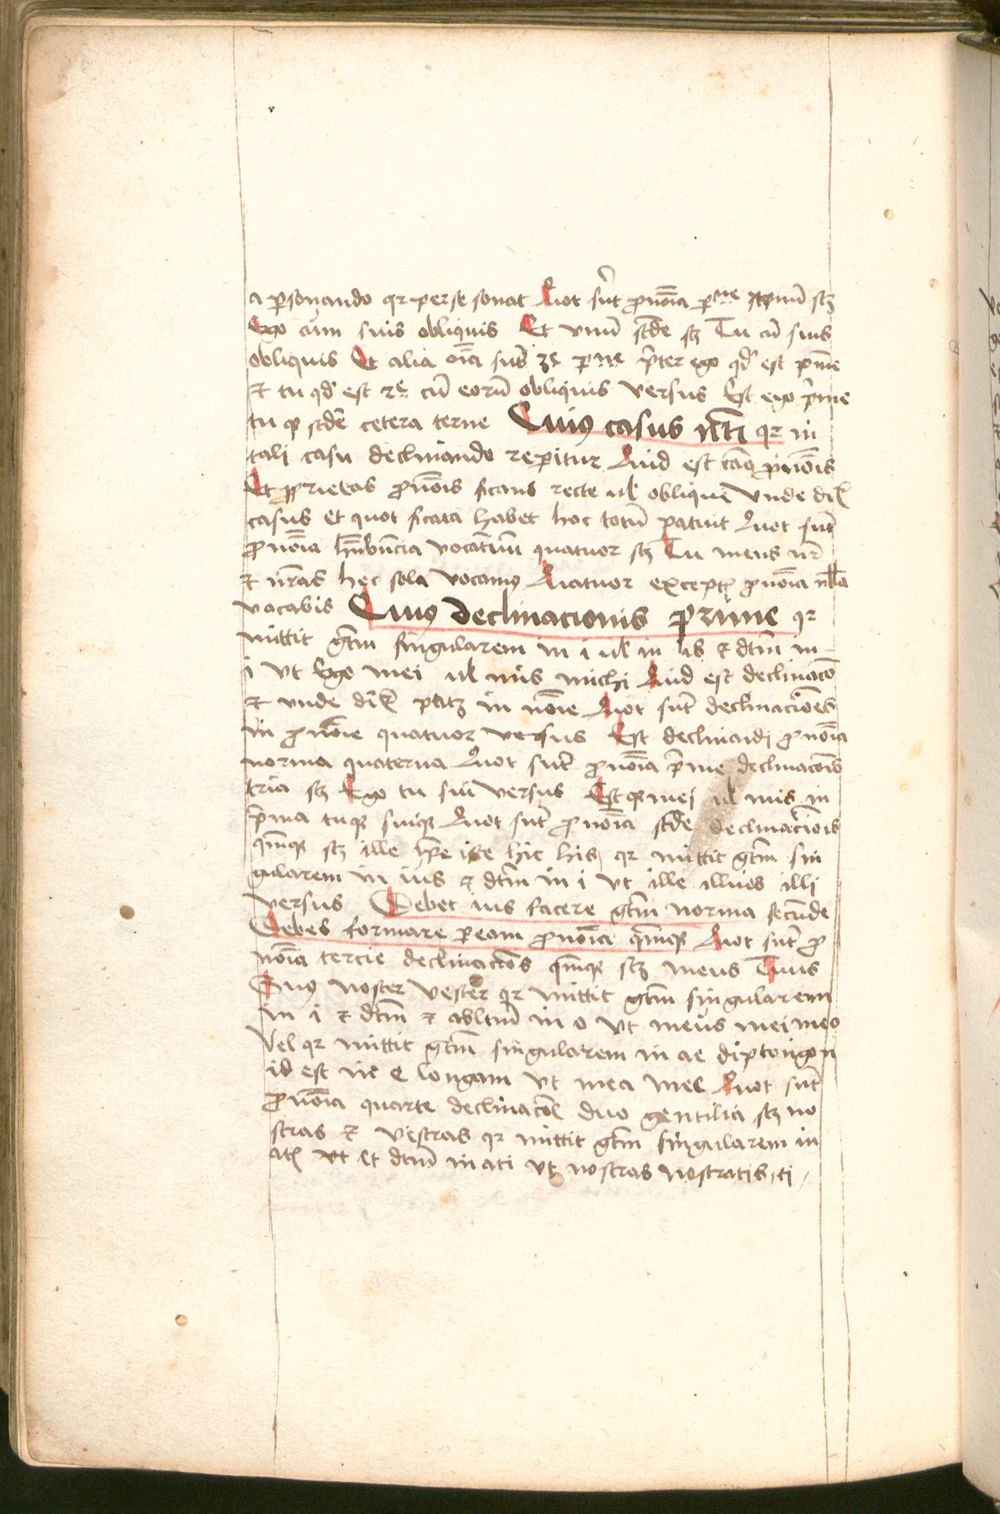 a personando qr per se sonat Quot sũt ꝓnoĩa p̱ne scꝫ
Ego cũm suis obliquis Et vnuꝫ scđe sꝫ Tu cũ suis
obliquis Et alia oĩa sũt 3e p̱ne p̃ter ego qđ est p̃me
et tu qđ est 2e cũ eorũ obliquis versus Est ego p̃me
tu qꝫ scđe cetera terne Cuius casus nt̃i qr in
tali casu declinando reperitur Quid est ꝓnoĩs
Et ꝓprietas ꝓnoĩs ficans recte ul obliqueͫ Vnde dr̃
casus et quot ficata habet hoc totũ patuit Quot sũt
ꝓnoĩa hñtia vocatiuũ quatuor sꝫ Tu meus nr̃
et nr̃as hec sola vocamus Quatuor exceptis ꝓnoĩa nulla
vocabis Cuius declinacionis prime qr
mittit gt̃m singularem in i ul in is et dt̃m in
i vt Ego mei ul mis michi Quid est declinacõ
et unde dr̃ ptꝫ in noĩe Quot sũt declinaciões
in ꝓnoĩe quatuor versus Est declinandi ꝓnoĩa
norma quaterna Quot sũt ꝓnoĩa p̃me declinacõis
tria sꝫ Ego tu sui versus Est qꝫ mei ul mis in
p̃ma tuqꝫ suiqꝫ Quot sũt ꝓnoĩa scđe declinaciõis
qũiqꝫ sꝫ ille ip̃e iste hic his qr mittit gt̃m sin
gularem in ius et dt̃m in i vt ille illius illi
versus Debet ius facere gt̃m norma secũde
Debes formare per eam ꝓnoĩa qũiqꝫ Quot sũt ꝓ
noĩa tercie declinaciõs qũiqꝫ scꝫ meus Tuus
Suus noster vester qr mittit gt̃m singularem
in i et dt̃m et abltm̃ in o vt meus mei meo
Vel qr mittit gt̃m singularem in ae diptongon
id est in e longam vt mea mee Quot sũt
ꝓnoĩa quarte declinacõis duo gentilia sꝫ no
stras et vestras qr mittit gt̃m singularem in
atis vt et dt̃m in ati vt nostras nostratis, ti,